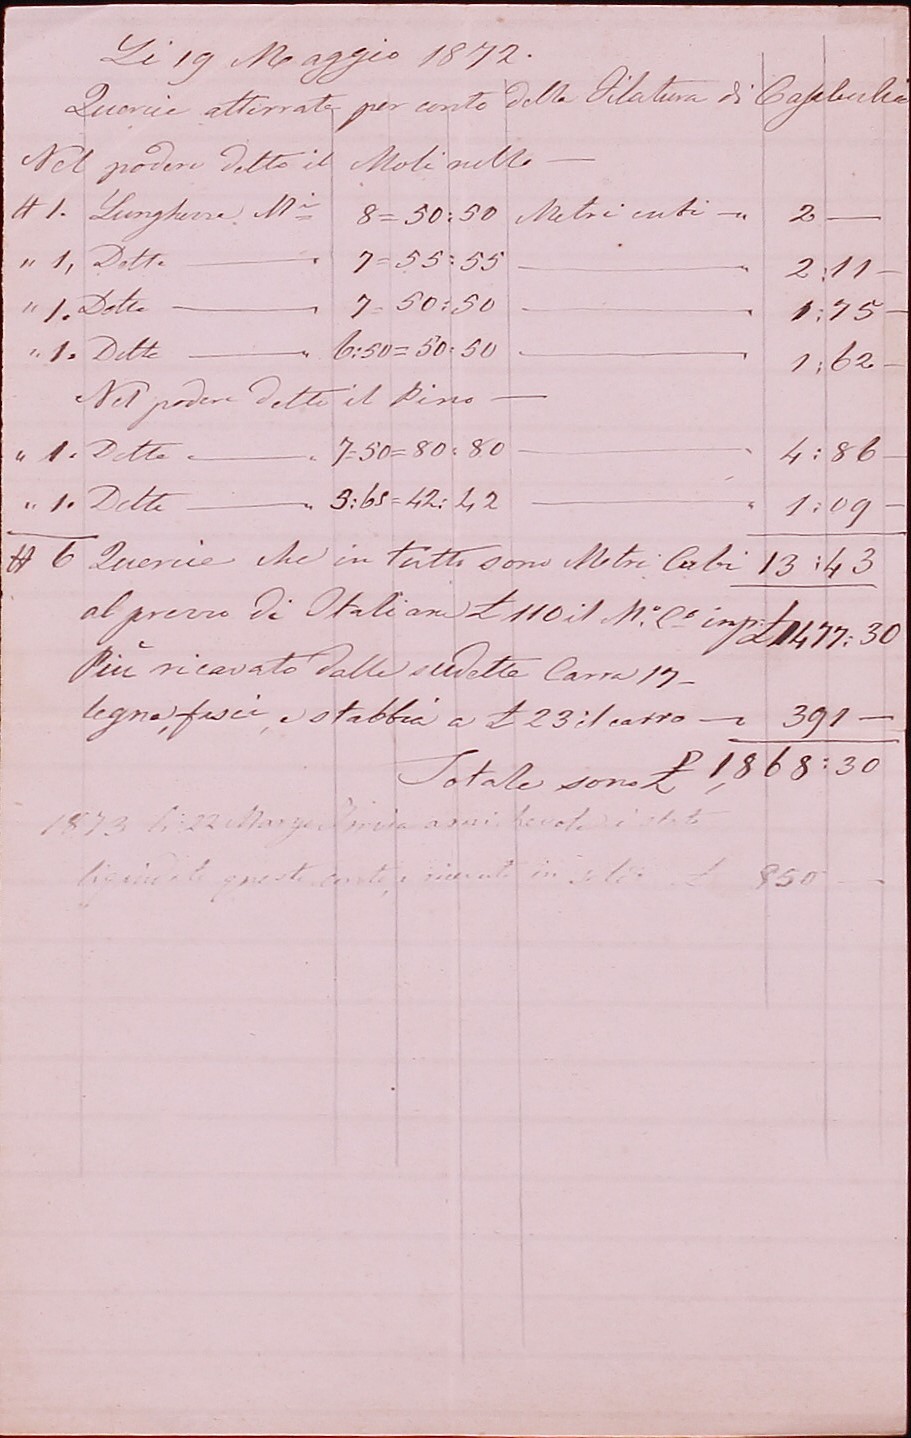 Li 19 Maggio 1872.
Quercie atterrate per conto della Filatura di
Nel podere detto il Molinello —
# 1. Lunghezza Mi 8=50:50 Metri cubi — " 2 —
" 1, Dette — " 7=55:55 — " 2:11 —
" 1. Dette — " 7=50:50 — " 1:75 —
" 1. Dette — " 6:50=50:50 — " 1:62 —
Nel podere detto il Pino —
" 1. Dette — " 7=50=80:80 — " 4:86 —
" 1. Dette — " 3:65=42:42 — " 1:09 —
# 6 Quercie che in tutto sono Metri Cubi 13:43
al prezzo di Italiane £ 110 il M.o C.o imp. £ 1477:30
Più ricavato dalle sudette Carra 17 —
legna, fasci, e stabbia a £ 23 il carro — " 391 —
Totale sono £ 1,868:30
1873 li 22 Marzo è stato
liquidato questo conto, e ricevuti in £ 850 —